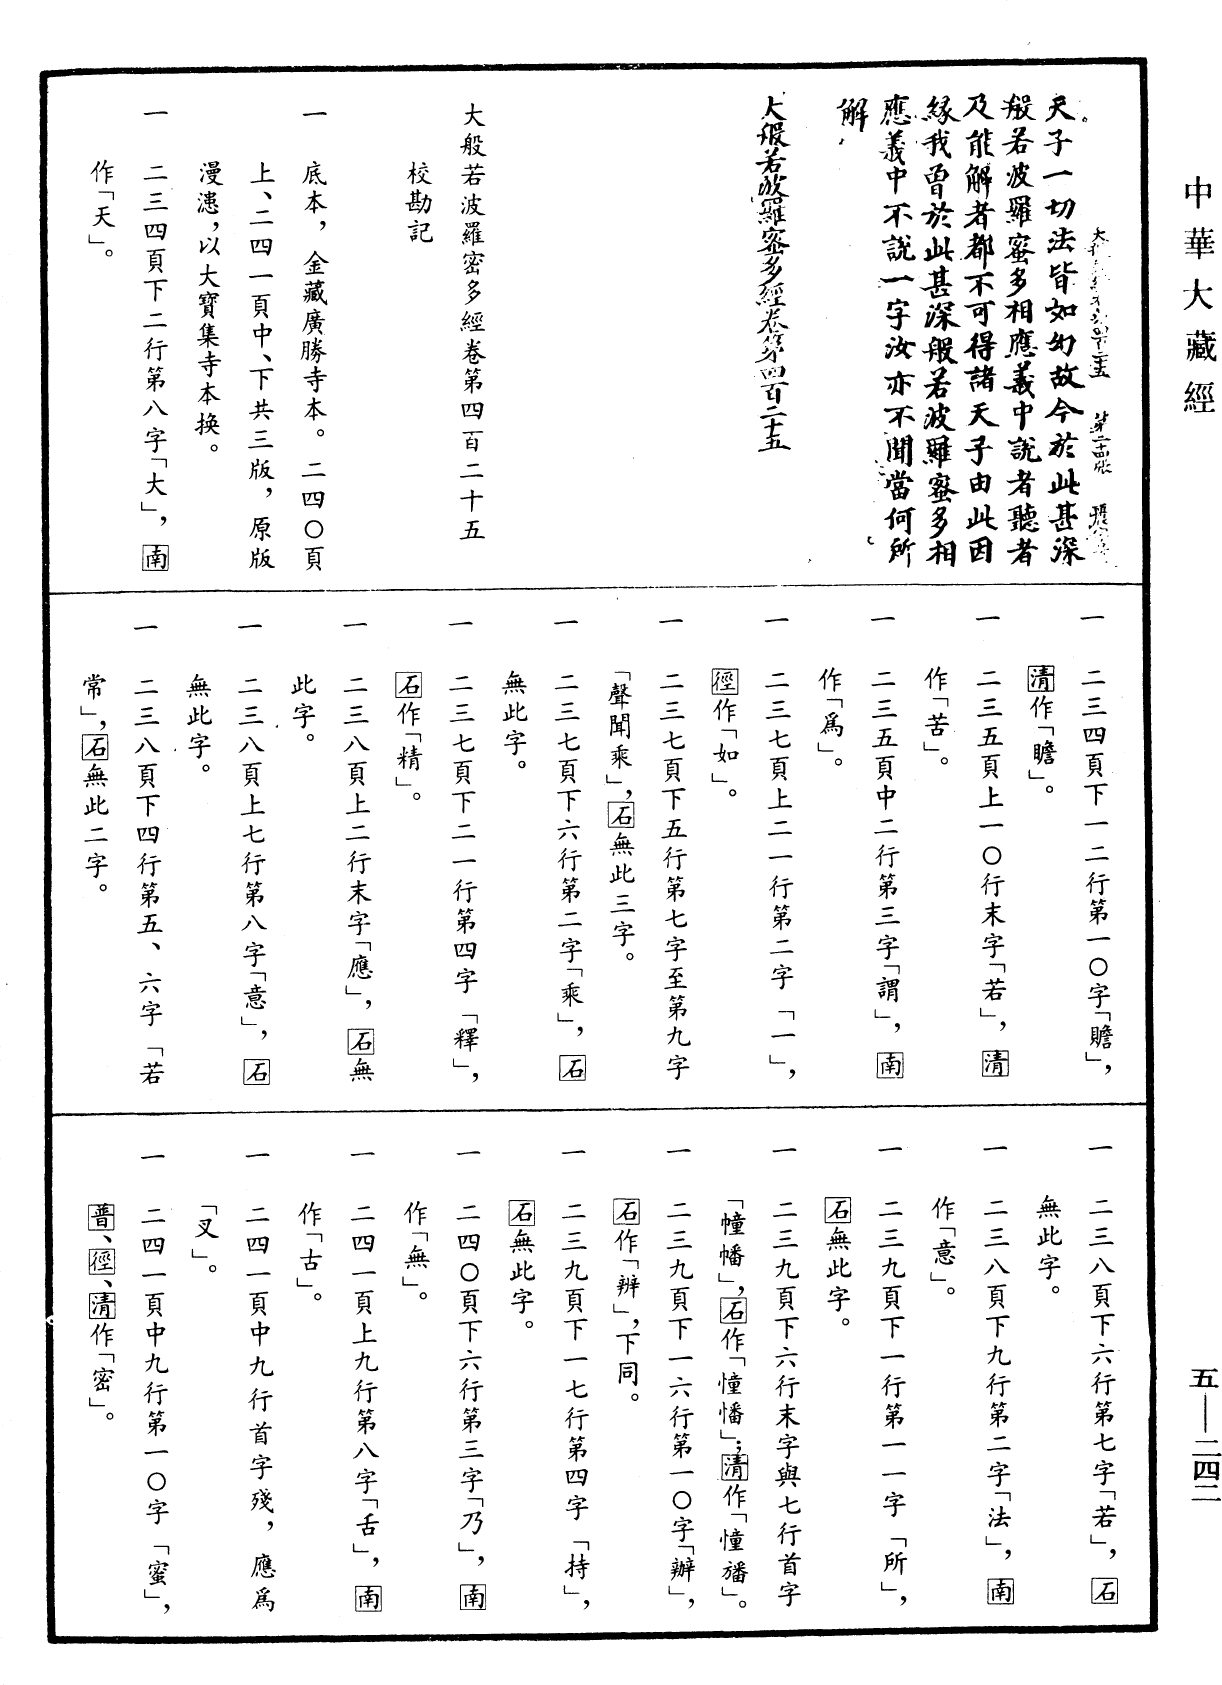 中華大藏經
天子一切法皆如幻故今於此甚深
般若波羅蜜多相應義中說者聽者
及能解者都不可得諸天子由此因
緣我曾於此甚深般若波羅蜜多相
應義中不說一字汝亦不聞當何所
解
大般若波羅蜜多經卷第四百二十五
大般若波羅密多經卷第四百二十五
校勘記
一　底本，金藏廣勝寺本。二四〇頁
上、二四一頁中、下共三版，原版
漫漶，以大寶集寺本換。
一　二三四頁下二行第八字「大」，南
作「天」。
一　二三四頁下一二行第一〇字「贍」，
清作「瞻」。
一　二三五頁上一〇行末字「若」，清
作「苦」。
一　二三五頁中二行第三字「謂」，南
作「爲」。
一　二三七頁上二一行第二字「一」，
徑作「如」。
一　二三七頁下五行第七字至第九字
「聲聞乘」，石無此三字。
一　二三七頁下六行第二字「乘」，石
無此字。
一　二三七頁下二一行第四字「釋」，
石作「精」。
一　二三八頁上二行末字「應」，石無
此字。
一　二三八頁上七行第八字「意」，石
無此字。
一　二三八頁下四行第五、六字「若
常」，石無此二字。
一　二三八頁下六行第七字「若」，石
無此字。
一　二三八頁下九行第二字「法」，南
作「意」。
一　二三九頁下一行第一一字「所」，
石無此字。
一　二三九頁下六行末字與七行首字
「幢幡」，石作「憧憣」；清作「憧旛」。
一　二三九頁下一六行第一〇字「辦」，
石作「辨」，下同。
一　二三九頁下一七行第四字「持」，
石無此字。
一　二四〇頁下六行第三字「乃」，南
作「無」。
一　二四一頁上九行第八字「舌」，南
作「古」。
一　二四一頁中九行首字殘，應爲
「叉」。
一　二四一頁中九行第一〇字「蜜」，
普、徑、清作「密」。
五——二四二